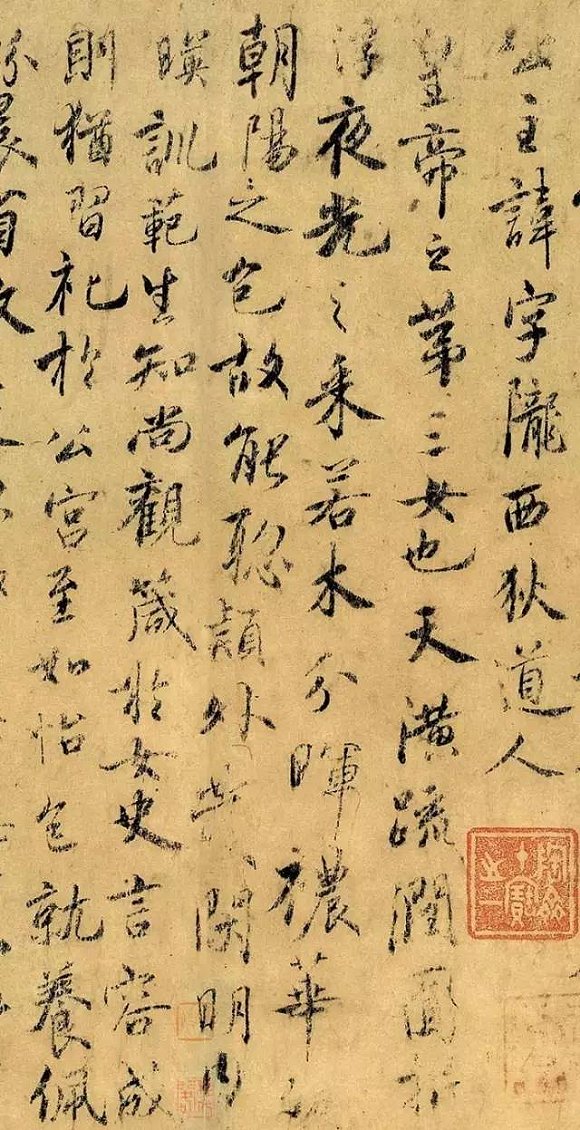 公主諱字隴西狄道人
皇帝之第三女也天潢疏潤圓折
浮夜光之采若木分暉穠華
朝陽之色故能聡穎外發閑明內
暎訓範生知尚觀箴於女史言容成
則猶習礼於公宮至如怡色就養佩